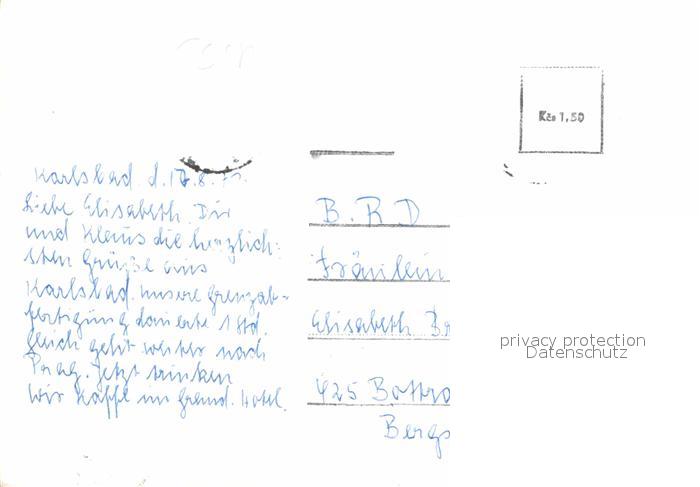 Kčs 1,50
Karlsbad d. 17.8.
Liebe Elisabeth Dir
und Klaus die herzlich-
sten Grüße aus
Karlsbad. unsere Grenzab-
fertigung dauerte 1 Std.
gleich geht weiter nach
Prag. Jetzt trinken
wir Kaffe im Grand. Hotel.
B. R D
Fräulein
Elisabeth Br
425 Bottro
Bergs
privacy protection
Datenschutz